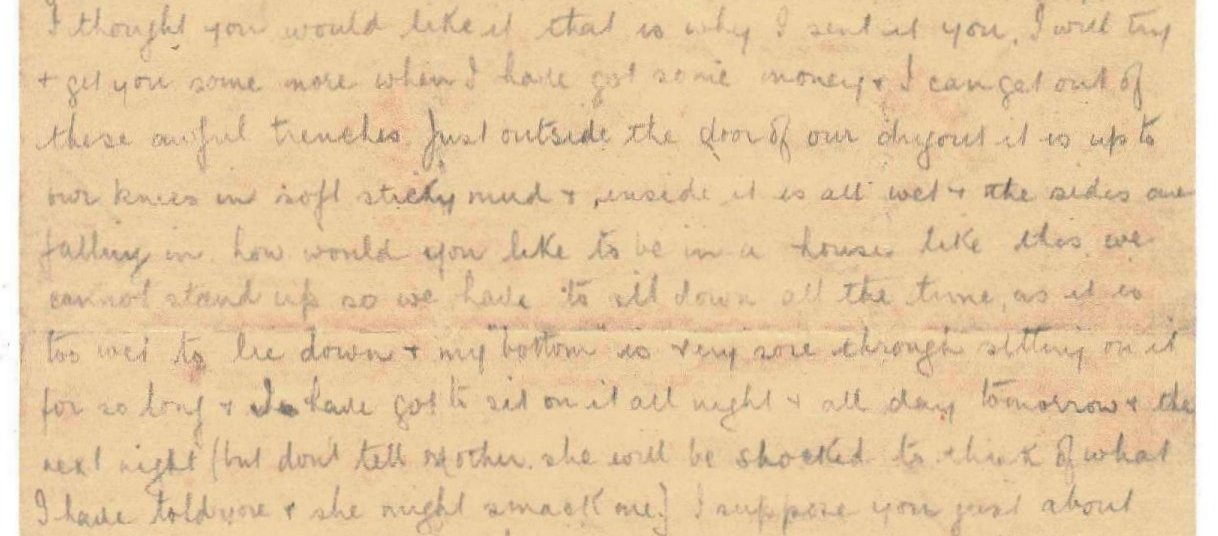 I thought you would like it that is why I sent it you, I will try
+ get you some more when I have got some money + I can get out of
these awful trenches. Just outside the door of our dugout it is up to
our knees in soft sticky mud + inside it is all wet + the sides are
falling in. how would you like to be in a house like this we
cannot stand up so we have to sit down all the time, as it is
too wet to lie down + my "bottom" is very sore through sitting on it
for so long + I have got to sit on it all night + all day tomorrow + the
next night (but dont tell Mother. she will be shocked to think of what
I have told you + she might smack me) I suppose you just about